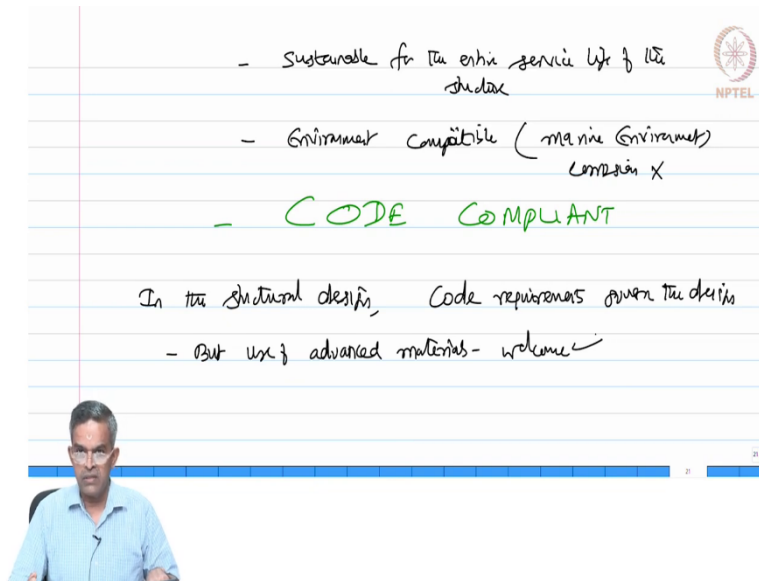 - Sustainable for the entire service life of the
structure
- Environment Compatible (marine Environment)
corrosion X
- CODE COMPLIANT
In the structural design, Code requirements govern the design
- But use of advanced materials - welcome ✓
NPTEL
21
21